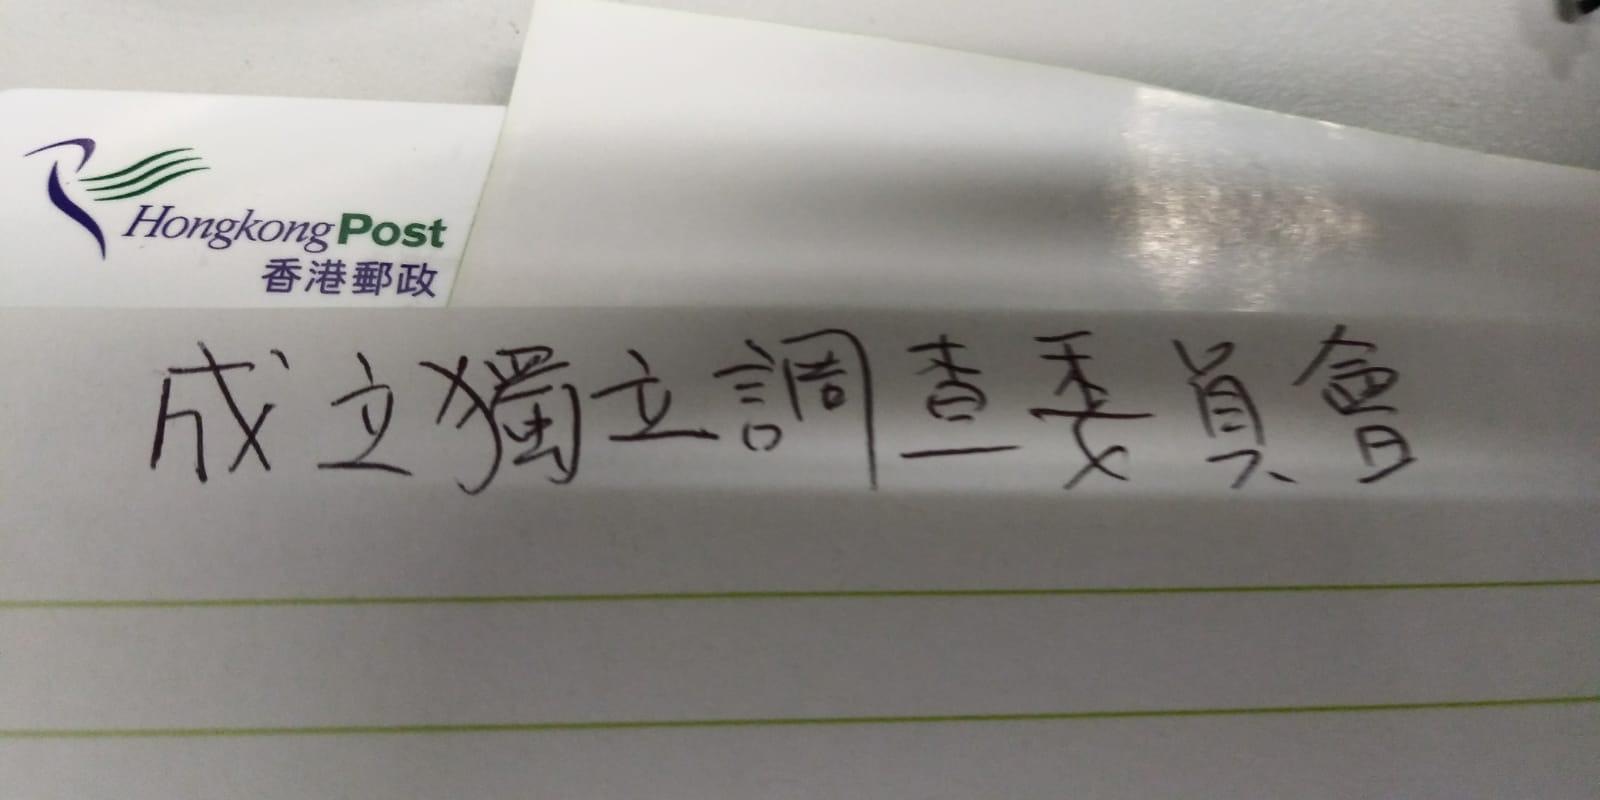 HongkongPost
香港郵政
成立獨立調查委員會